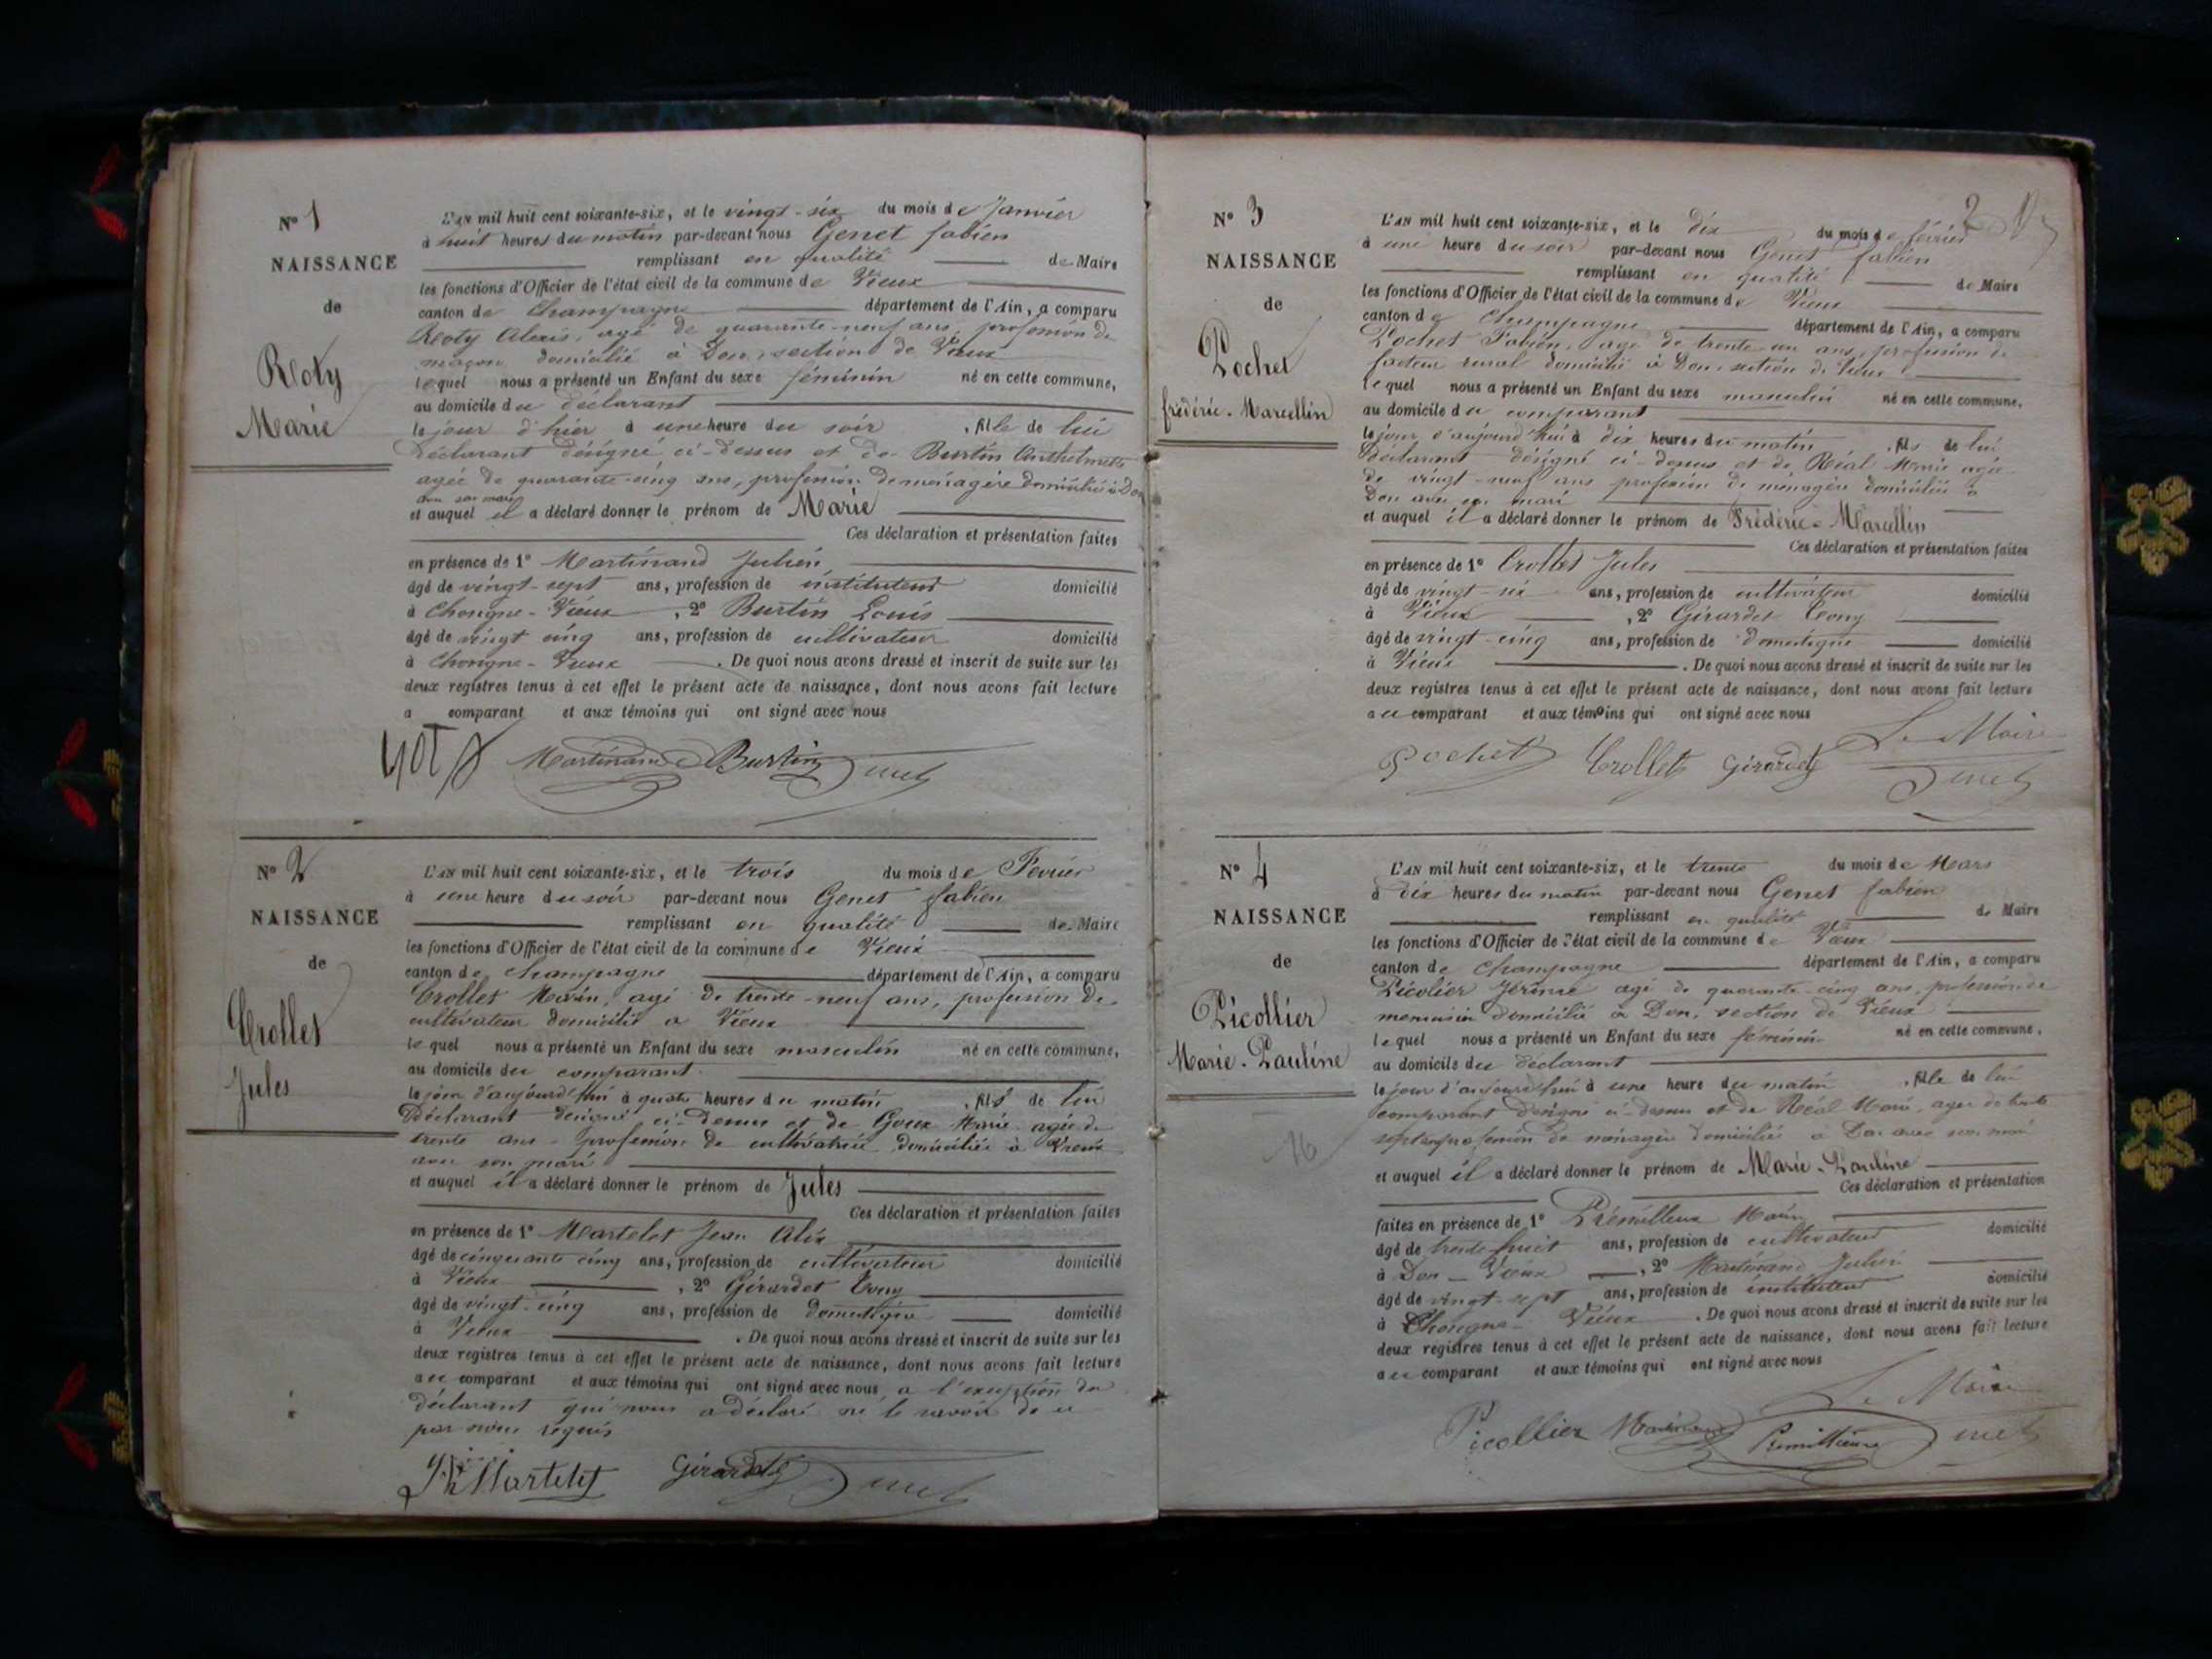 N° 1
NAISSANCE
de
Rloty
Marie
L'AN mil huit cent soixante-six, et le vingt-six du mois de Janvier
à huit heures du matin par-devant nous Genet fabien
remplissant en qualité de Maire
les fonctions d'Officier de l'état civil de la commune de Vieux
canton de Champagne département de l'Ain, a comparu
Rloty Alexis, agé de quarante-neuf ans, profession de
maçon domicilié à Don, section de Vieux
lequel nous a présenté un Enfant du sexe féminin né en cette commune,
au domicile du déclarant
le jour d'hier à une heure du soir , fille de lui
Déclarant désigné ci-dessus et de Burtin Anthelmette
agée de quarante-cinq ans, profession de ménagère domiciliée à Don
avec son mari
et auquel il a déclaré donner le prénom de Marie
Ces déclaration et présentation faites
en présence de 1° Martinand Julien
âgé de vingt-sept ans, profession de instituteur domicilié
à Chongne-Vieux , 2° Burtin Louis
âgé de vingt cinq ans, profession de cultivateur domicilié
à Chongne-Vieux . De quoi nous avons dressé et inscrit de suite sur les
deux registres tenus à cet effet le présent acte de naissance, dont nous avons fait lecture
a comparant et aux témoins qui ont signé avec nous
Martinand Burtin Genet
N° 2
NAISSANCE
de
Crollet
Jules
L'AN mil huit cent soixante-six, et le trois du mois de Fevrier
à une heure du soir par-devant nous Genet fabien
remplissant en qualité de Maire
les fonctions d'Officier de l'état civil de la commune de Vieux
canton de Champagne département de l'Ain, a comparu
Crollet Marin, agé de trente-neuf ans, profession de
cultivateur domicilié a Vieux
lequel nous a présenté un Enfant du sexe masculin né en cette commune,
au domicile du comparant
le jour d'aujourd'hui à quatre heures du matin , fils de lui
Déclarant désigné ci-dessus et de Goux Marie agée de
trente ans profession de cultivatrice domiciliée à Vieux
avec son mari
et auquel il a déclaré donner le prénom de Jules
Ces déclaration et présentation faites
en présence de 1° Martelet Jean Alix
âgé de cinquante cinq ans, profession de cultivateur domicilié
à Vieux , 2° Girardet Tony
âgé de vingt-cinq ans, profession de domestique domicilié
à Vieux . De quoi nous avons dressé et inscrit de suite sur les
deux registres tenus à cet effet le présent acte de naissance, dont nous avons fait lecture
au comparant et aux témoins qui ont signé avec nous, a l'exception du
déclarant qui nous a déclaré ne le savoir de ce
par nous requis
Martelet Girardet Genet
2
N° 3
NAISSANCE
de
Pochet
frédéric-Marcellin
L'AN mil huit cent soixante-six, et le dix du mois de février
à une heure du soir par-devant nous Genet fabien
remplissant en qualité de Maire
les fonctions d'Officier de l'état civil de la commune de Vieux
canton de Champagne département de l'Ain, a comparu
Pochet Fabien, agé de trente-un ans, profession de
facteur rural domicilié à Don, section de Vieux
lequel nous a présenté un Enfant du sexe masculin né en cette commune,
au domicile du comparant
le jour d'aujourd'hui à dix heures du matin , fils de lui
Déclarant désigné ci-dessus et de Réal Marie agée
de vingt-neuf ans profession de ménagère domiciliée à
Don avec son mari
et auquel il a déclaré donner le prénom de Frédéric-Marcellin
Ces déclaration et présentation faites
en présence de 1° Crollet Jules
âgé de vingt-six ans, profession de cultivateur domicilié
à Vieux , 2° Girardet Tony
âgé de vingt-cinq ans, profession de domestique domicilié
à Vieux . De quoi nous avons dressé et inscrit de suite sur les
deux registres tenus à cet effet le présent acte de naissance, dont nous avons fait lecture
au comparant et aux témoins qui ont signé avec nous
Le Maire
Pochet Crollet Girardet Genet
N° 4
NAISSANCE
de
Picollier
Marie-Pauline
16
L'AN mil huit cent soixante-six, et le trente du mois de Mars
à dix heures du matin par-devant nous Genet fabien
remplissant en qualité de Maire
les fonctions d'Officier de l'état civil de la commune de Vieux
canton de Champagne département de l'Ain, a comparu
Picolier Jérome agé de quarante-cinq ans, profession de
menuisier domicilié à Don, section de Vieux
lequel nous a présenté un Enfant du sexe féminin né en cette commune,
au domicile du déclarant
le jour d'aujourd'hui à une heure du matin , fille de lui
comparant désigné ci-dessus et de Réal Marie, agée de trente
sept ans profession de ménagère domiciliée à Don avec son mari
et auquel il a déclaré donner le prénom de Marie-Pauline
Ces déclaration et présentation
faites en présence de 1° Prémillieux Marin
âgé de trente huit ans, profession de cultivateur domicilié
à Don-Vieux , 2° Martinand Julien
âgé de vingt-sept ans, profession de instituteur domicilié
à Chongne-Vieux . De quoi nous avons dressé et inscrit de suite sur les
deux registres tenus à cet effet le présent acte de naissance, dont nous avons fait lecture
au comparant et aux témoins qui ont signé avec nous
Le Maire
Picollier Martinand Prémillieux Genet